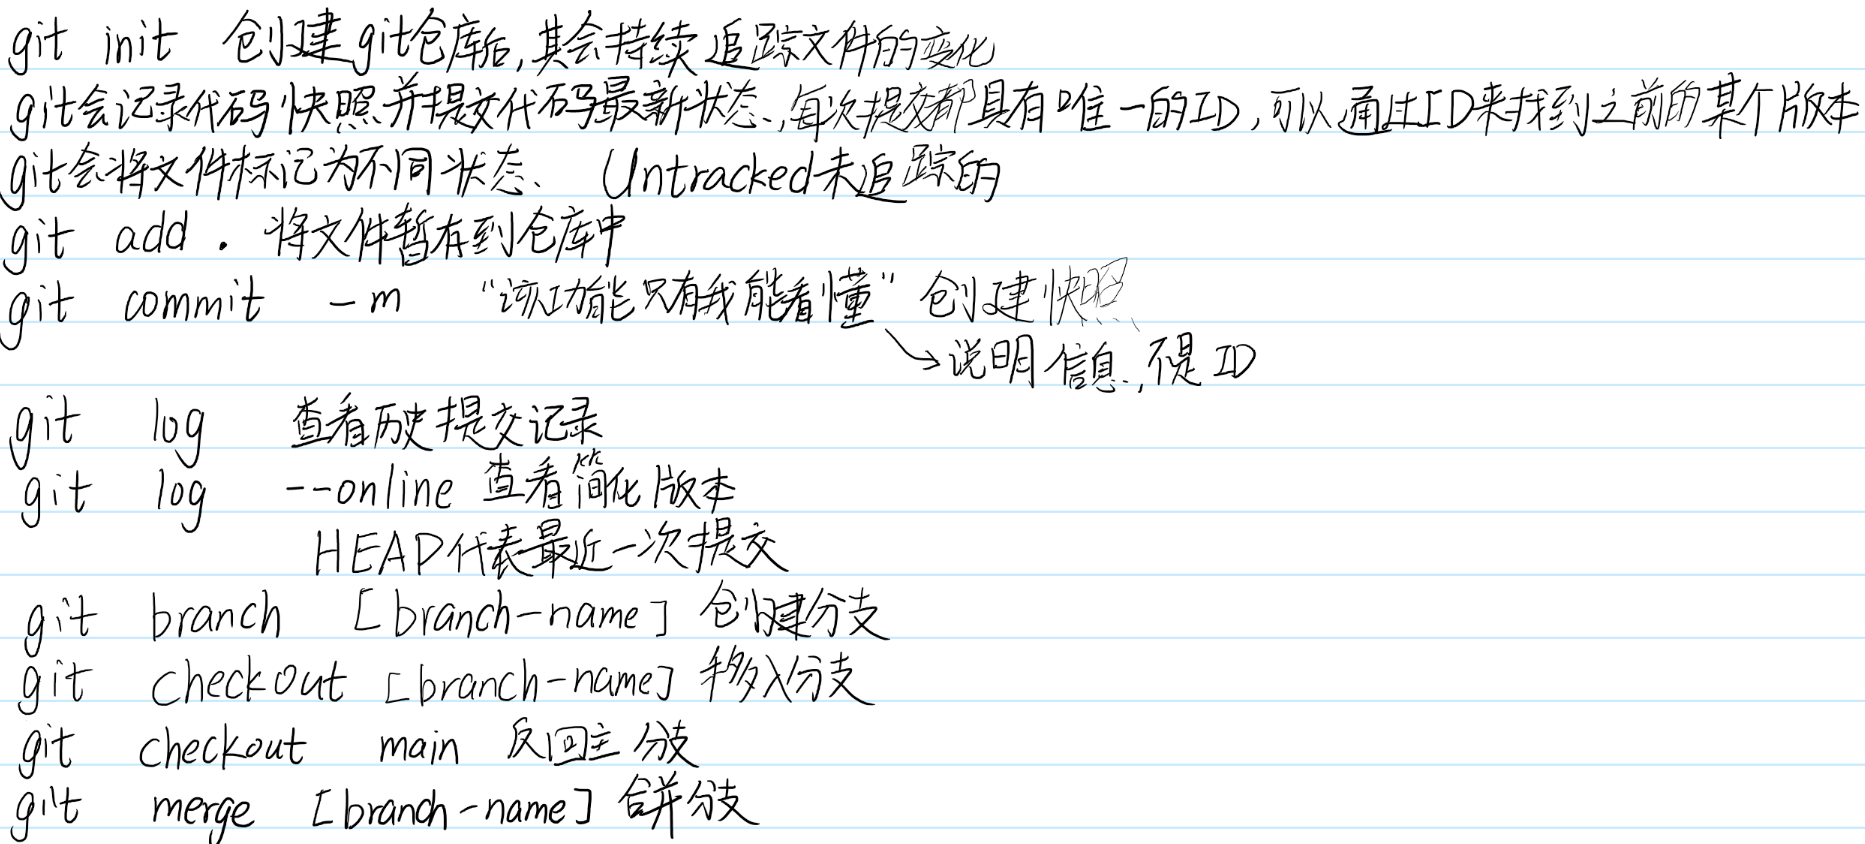 git init 创建git仓库后,其会持续追踪文件的变化
git会记录代码快照并提交代码最新状态,每次提交都具有唯一的ID,可以通过ID来找到之前的某个版本
git会将文件标记为不同状态、 Untracked未追踪的
git add . 将文件暂存到仓库中
git commit -m "该功能只有我能看懂" 创建快照
说明信息,不是ID
git log 查看历史提交记录
git log --online 查看简化版本
HEAD代表最近一次提交
git branch [branch-name] 创建分支
git checkout [branch-name] 移入分支
git checkout main 反回主分支
git merge [branch-name] 合并分支